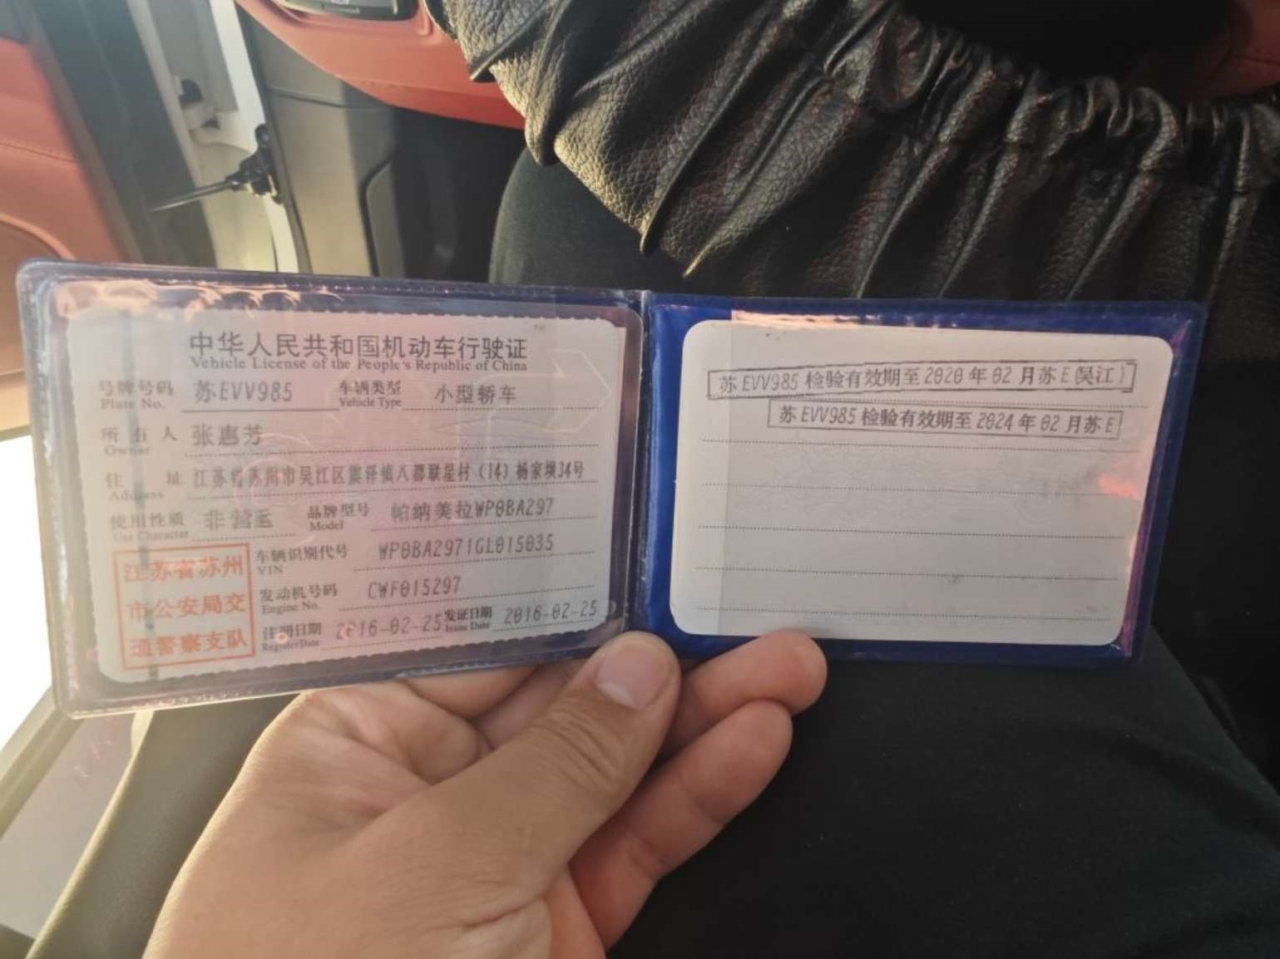 中华人民共和国机动车行驶证
Vehicle License of the People's Republic of China
号牌号码 苏EVV985 车辆类型 小型轿车
Plate No. Vehicle Type
所有人 张惠芳
Owner
住址 江苏省苏州市吴江区震泽镇八都联星村(14)杨家坝34号
Address
使用性质 非营运 品牌型号 帕纳美拉WP0BA297
Use Character Model
车辆识别代号 WP0BA2971GL015035
VIN
发动机号码 CWF015297
Engine No.
注册日期 2016-02-25 发证日期 2016-02-25
Register Date Issue Date
江苏省苏州
市公安局交
通警察支队
苏EVV985检验有效期至2020年02月苏E(吴江)
苏EVV985检验有效期至2024年02月苏E